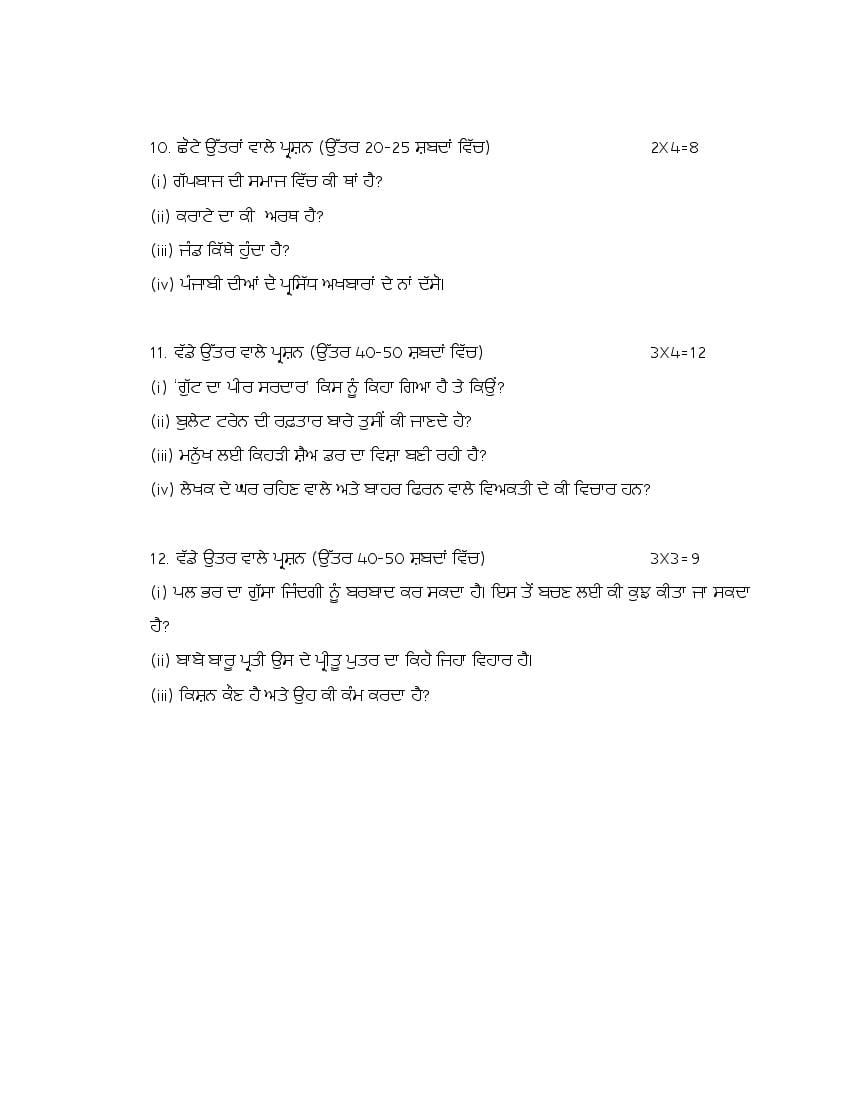 10. ਛੋਟੇ ਉੱਤਰਾਂ ਵਾਲੇ ਪ੍ਰਸ਼ਨ (ਉੱਤਰ 20-25 ਸ਼ਬਦਾਂ ਵਿੱਚ) 2X4=8
(i) ਗੱਪਬਾਜ ਦੀ ਸਮਾਜ ਵਿੱਚ ਕੀ ਥਾਂ ਹੈ?
(ii) ਕਰਾਟੇ ਦਾ ਕੀ ਅਰਥ ਹੈ?
(iii) ਜੰਡ ਕਿੱਥੇ ਹੁੰਦਾ ਹੈ?
(iv) ਪੰਜਾਬੀ ਦੀਆਂ ਦੋ ਪ੍ਰਸਿੱਧ ਅਖਬਾਰਾਂ ਦੇ ਨਾਂ ਦੱਸੋ।
11. ਵੱਡੇ ਉੱਤਰ ਵਾਲੇ ਪ੍ਰਸ਼ਨ (ਉੱਤਰ 40-50 ਸ਼ਬਦਾਂ ਵਿੱਚ) 3X4=12
(i) 'ਗੁੱਟ ਦਾ ਪੀਰ ਸਰਦਾਰ' ਕਿਸ ਨੂੰ ਕਿਹਾ ਗਿਆ ਹੈ ਤੇ ਕਿਉਂ?
(ii) ਬੁਲੇਟ ਟਰੇਨ ਦੀ ਰਫ਼ਤਾਰ ਬਾਰੇ ਤੁਸੀਂ ਕੀ ਜਾਣਦੇ ਹੋ?
(iii) ਮਨੁੱਖ ਲਈ ਕਿਹੜੀ ਸ਼ੈਅ ਡਰ ਦਾ ਵਿਸ਼ਾ ਬਣੀ ਰਹੀ ਹੈ?
(iv) ਲੇਖਕ ਦੇ ਘਰ ਰਹਿਣ ਵਾਲੇ ਅਤੇ ਬਾਹਰ ਫਿਰਨ ਵਾਲੇ ਵਿਅਕਤੀ ਦੇ ਕੀ ਵਿਚਾਰ ਹਨ?
12. ਵੱਡੇ ਉਤਰ ਵਾਲੇ ਪ੍ਰਸ਼ਨ (ਉੱਤਰ 40-50 ਸ਼ਬਦਾਂ ਵਿੱਚ) 3X3=9
(i) ਪਲ ਭਰ ਦਾ ਗੁੱਸਾ ਜਿੰਦਗੀ ਨੂੰ ਬਰਬਾਦ ਕਰ ਸਕਦਾ ਹੈ। ਇਸ ਤੋਂ ਬਚਣ ਲਈ ਕੀ ਕੁਝ ਕੀਤਾ ਜਾ ਸਕਦਾ
ਹੈ?
(ii) ਬਾਬੇ ਬਾਰੂ ਪ੍ਰਤੀ ਉਸ ਦੇ ਪ੍ਰੀਤੂ ਪੁਤਰ ਦਾ ਕਿਹੋ ਜਿਹਾ ਵਿਹਾਰ ਹੈ।
(iii) ਕਿਸ਼ਨ ਕੌਣ ਹੈ ਅਤੇ ਉਹ ਕੀ ਕੰਮ ਕਰਦਾ ਹੈ?